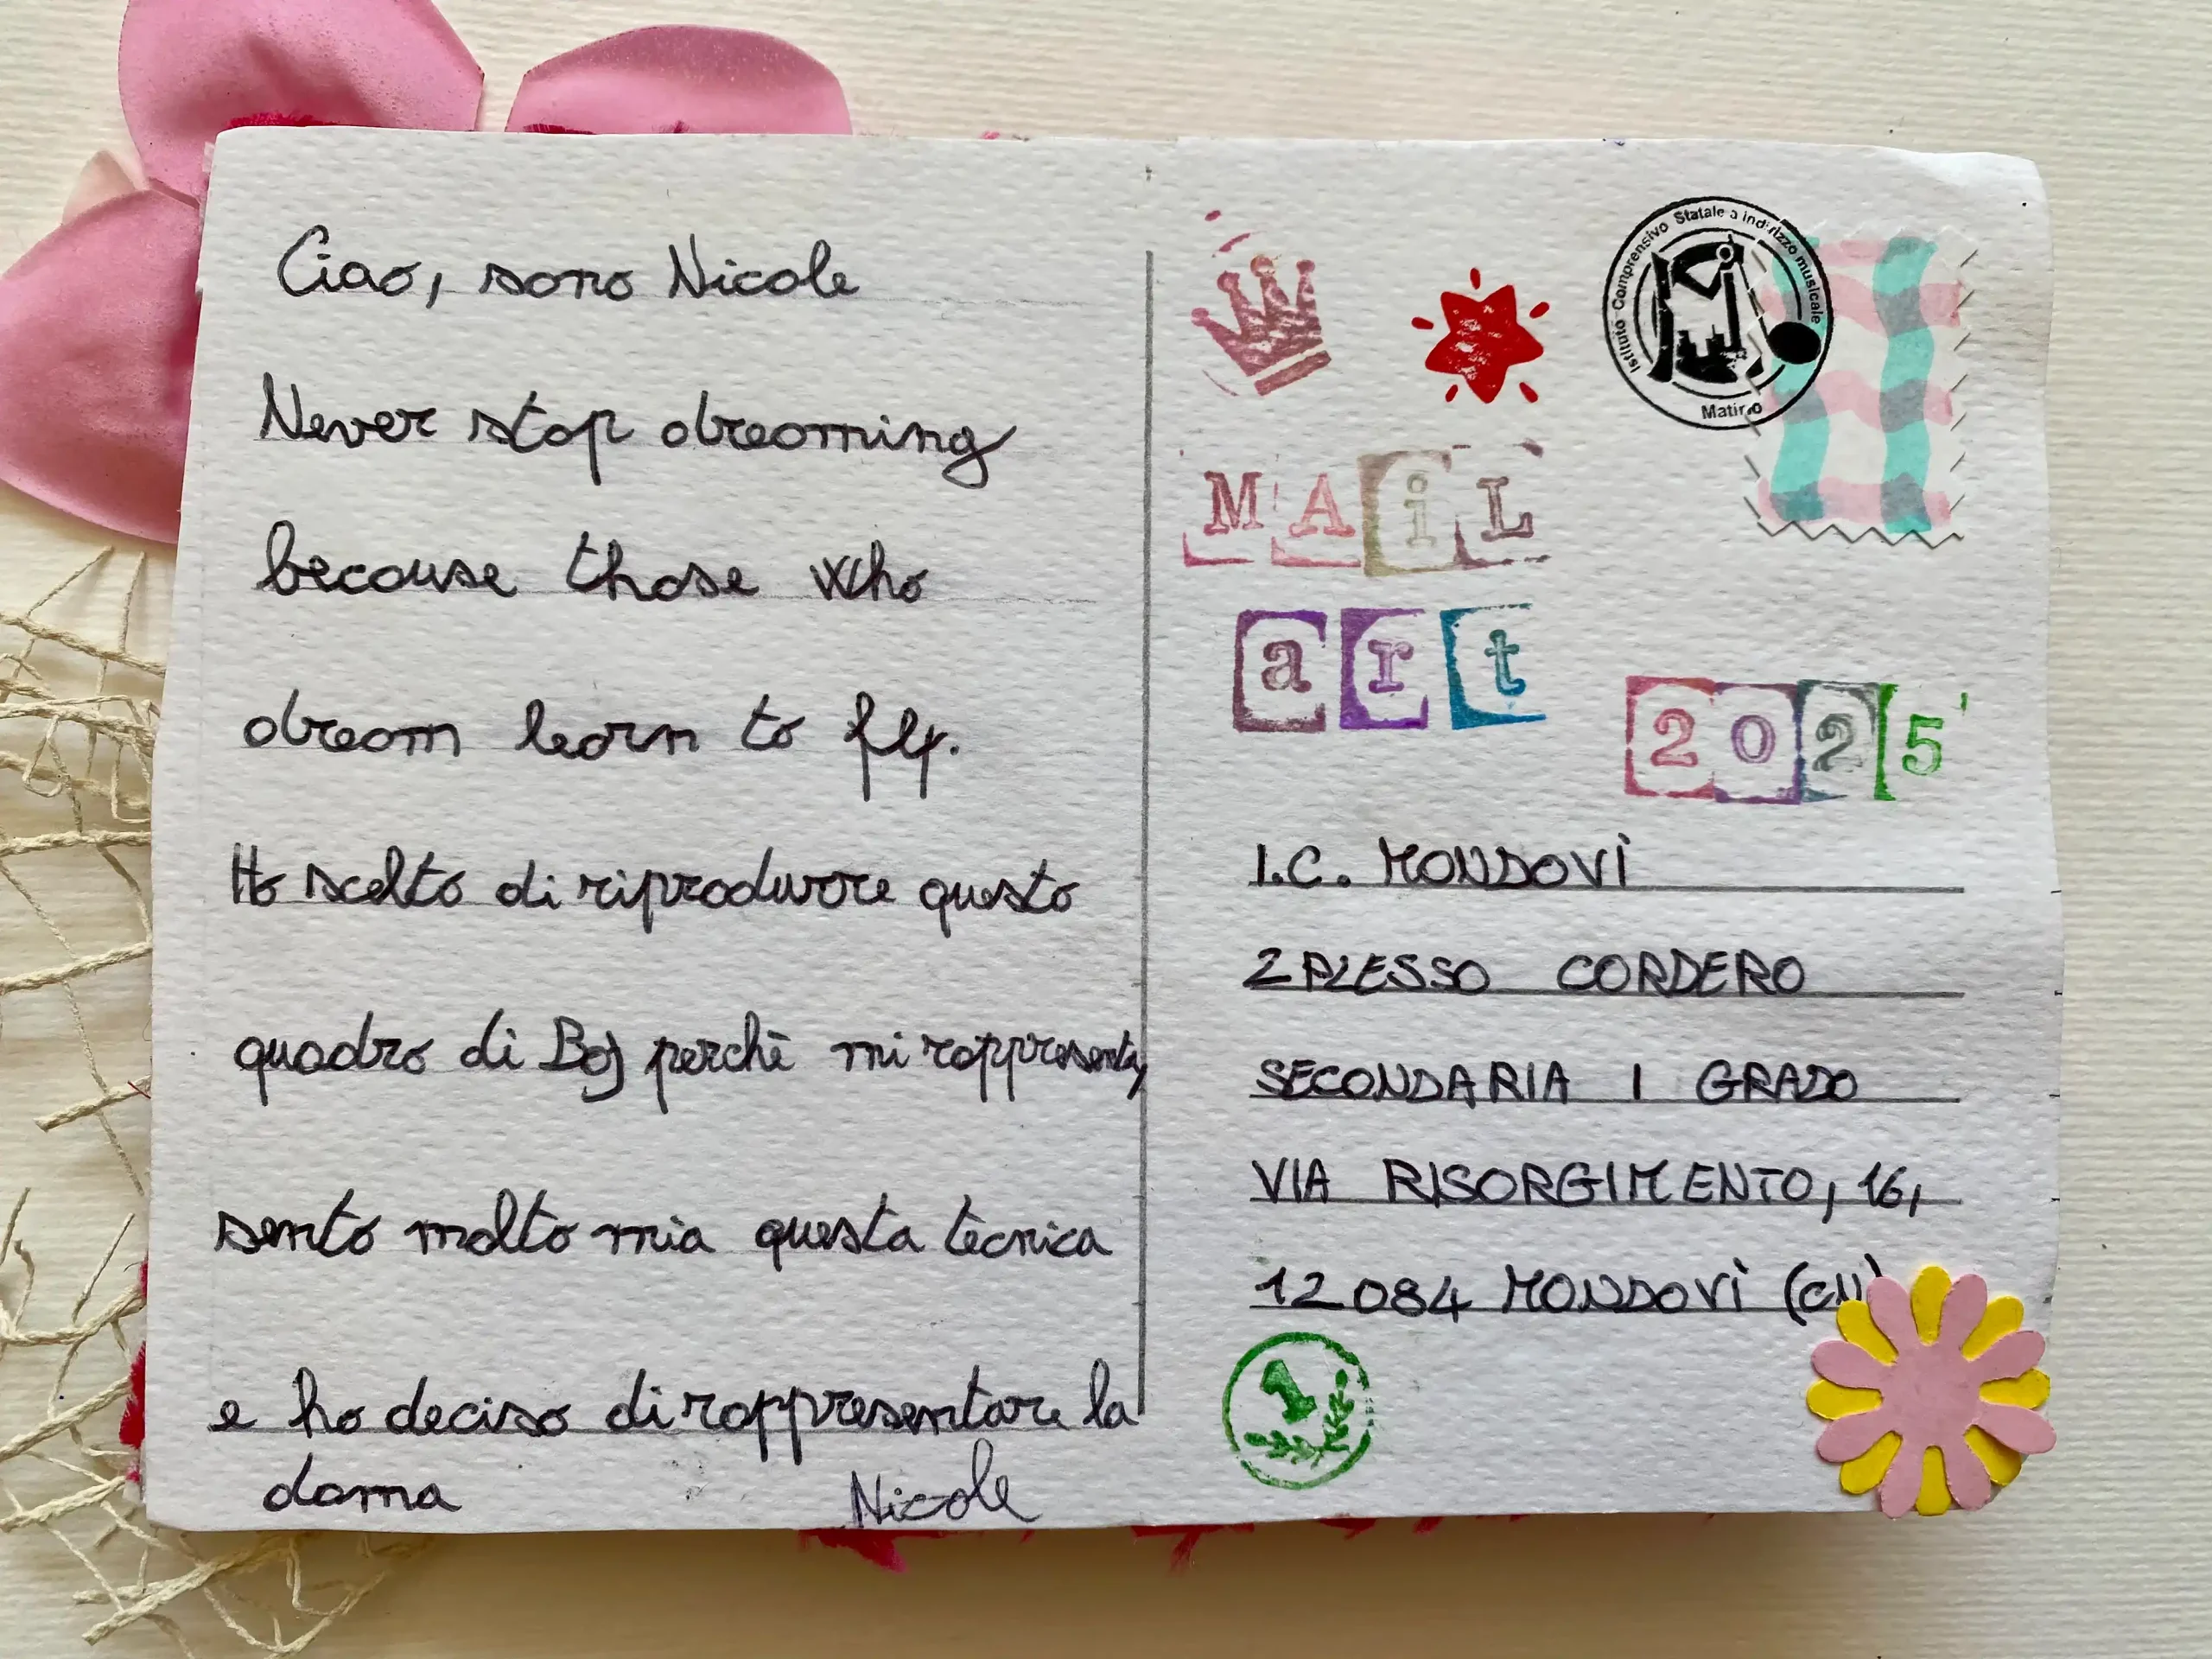 Ciao, sono Nicole
Never stop dreaming
because those who
dream learn to fly.
Ho scelto di riprodurore questo
quadro di Boj perchè mi rappresenta,
sento molto mia questa tecnica
e ho deciso di rappresentare la
dama
Nicole
Istituto Comprensivo Statale a indirizzo musicale
Matino
MAiL
art
2025
I.C. MONDOVÌ
2 PLESSO CORDERO
SECONDARIA I GRADO
VIA RISORGIMENTO, 16,
12084 MONDOVÌ (CN)
1